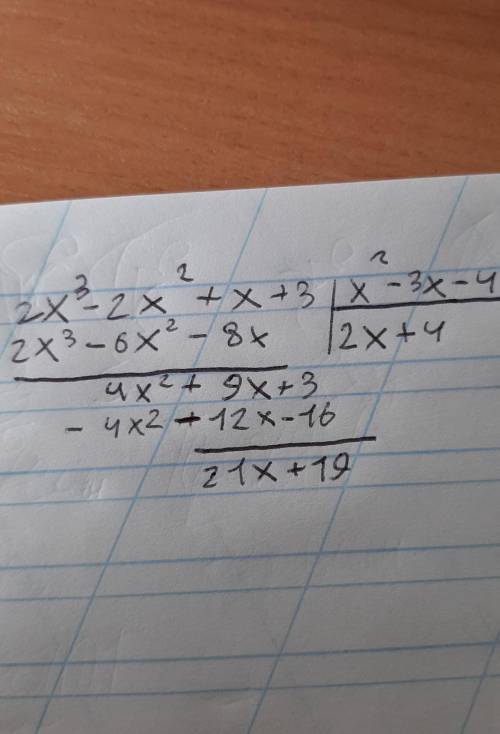 2x³ - 2x² + x + 3 | x² - 3x - 4
2x³ - 6x² - 8x | 2x + 4
4x² + 9x + 3
- 4x² - 12x - 16
21x + 19